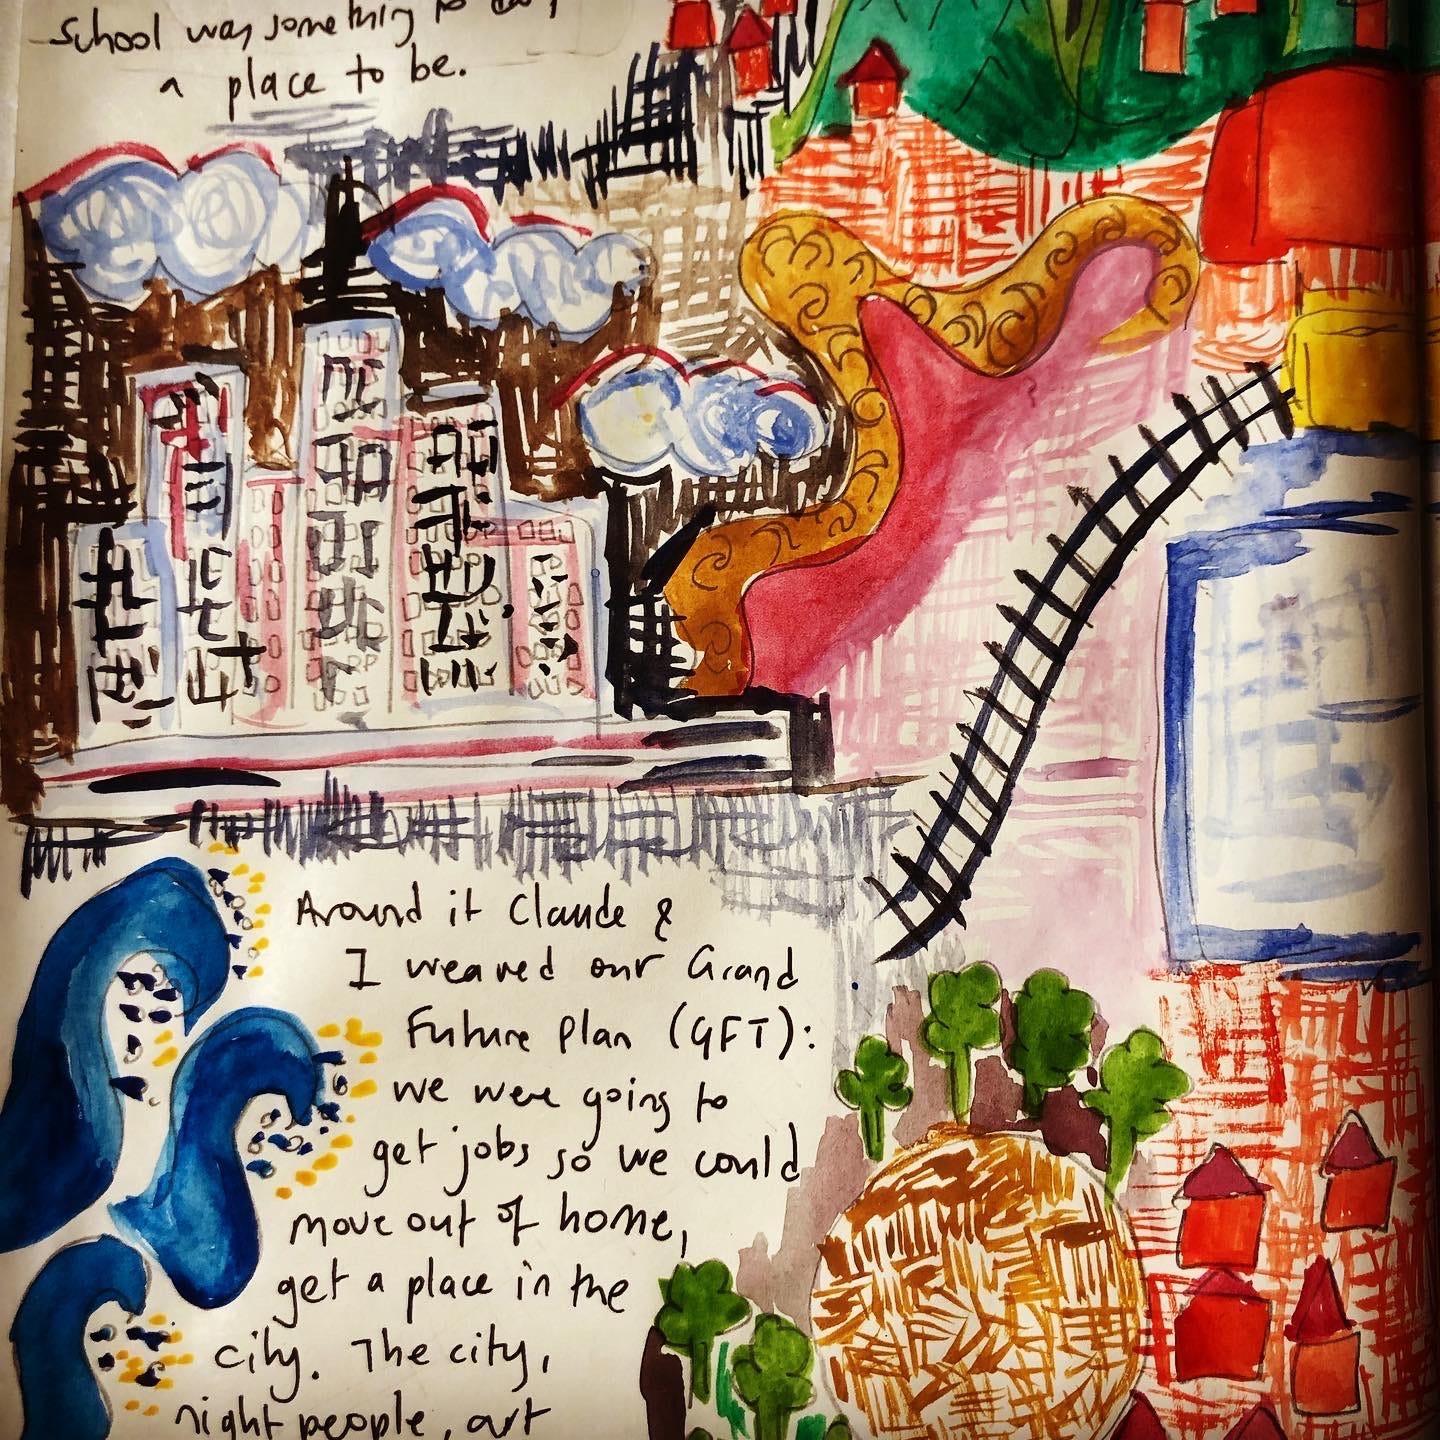 School was something to
a place to be.
Around it Claude &
I weaved our Grand
Future Plan (GFT):
we were going to
get jobs so we could
move out of home,
get a place in the
city. The city,
night people, art